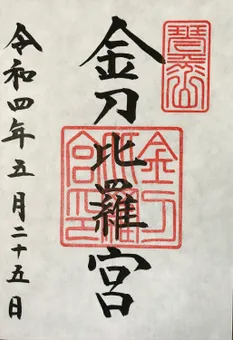 琴平山
金刀比羅宮
金刀比羅宮印
令和四年五月二十五日